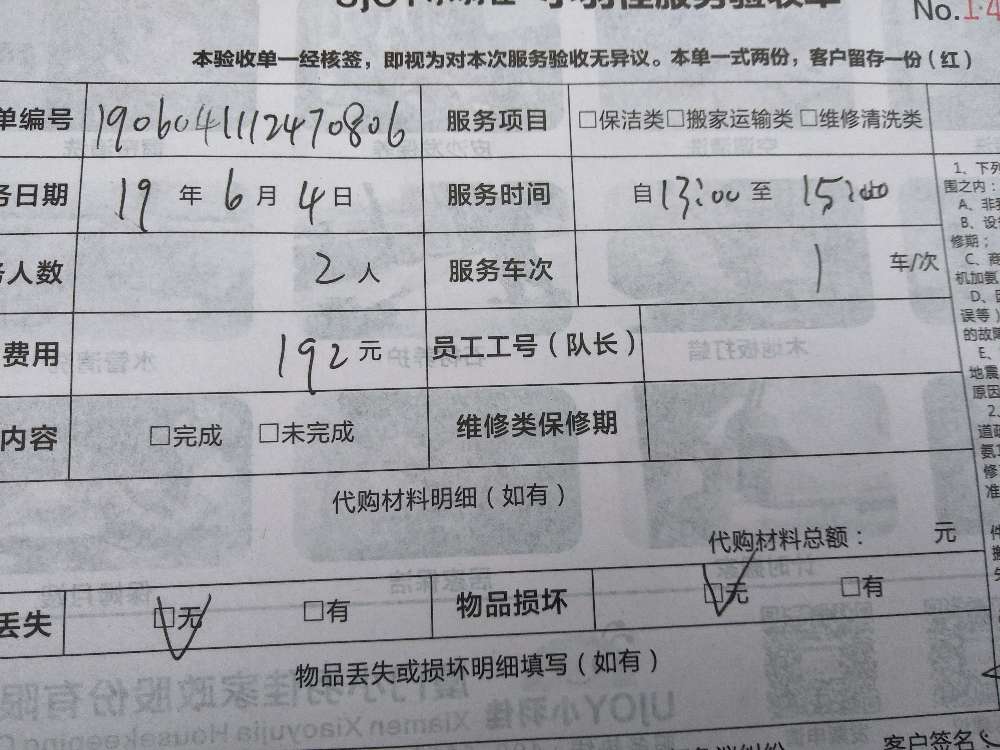 小羽佳服务验收单 No.1
本验收单一经核签，即视为对本次服务验收无异议。本单一式两份，客户留存一份（红）
单编号 190604111247080б 服务项目 □保洁类□搬家运输类□维修清洗类
务日期 19 年 6 月 4 日 服务时间 自 13:00 至 15:00
务人数 2 人 服务车次 1 车/次
费用 192 元 员工工号（队长）
内容 □完成 □未完成 维修类保修期
代购材料明细（如有）
代购材料总额： 元
丢失 □无 □有 物品损坏 □无 □有
物品丢失或损坏明细填写（如有）
客户签名
1、下列
围之内：
A、非
B、设
修期；
C、商
机加氨
D、
误等）
的故障
E、
地震
原因
2
道
氨
修
准
UJOY小羽佳
厦门小羽佳家政股份有限
Xiamen Xiaoyujia Housekeeping